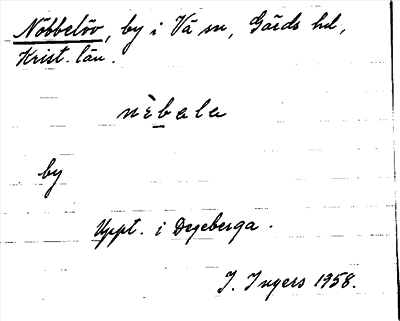 Nöbbelöv, by i Vä sn, Gärds hd,
Krist. län.
nèbala
by
Uppt. i Degeberga.
I. Ingers 1958.